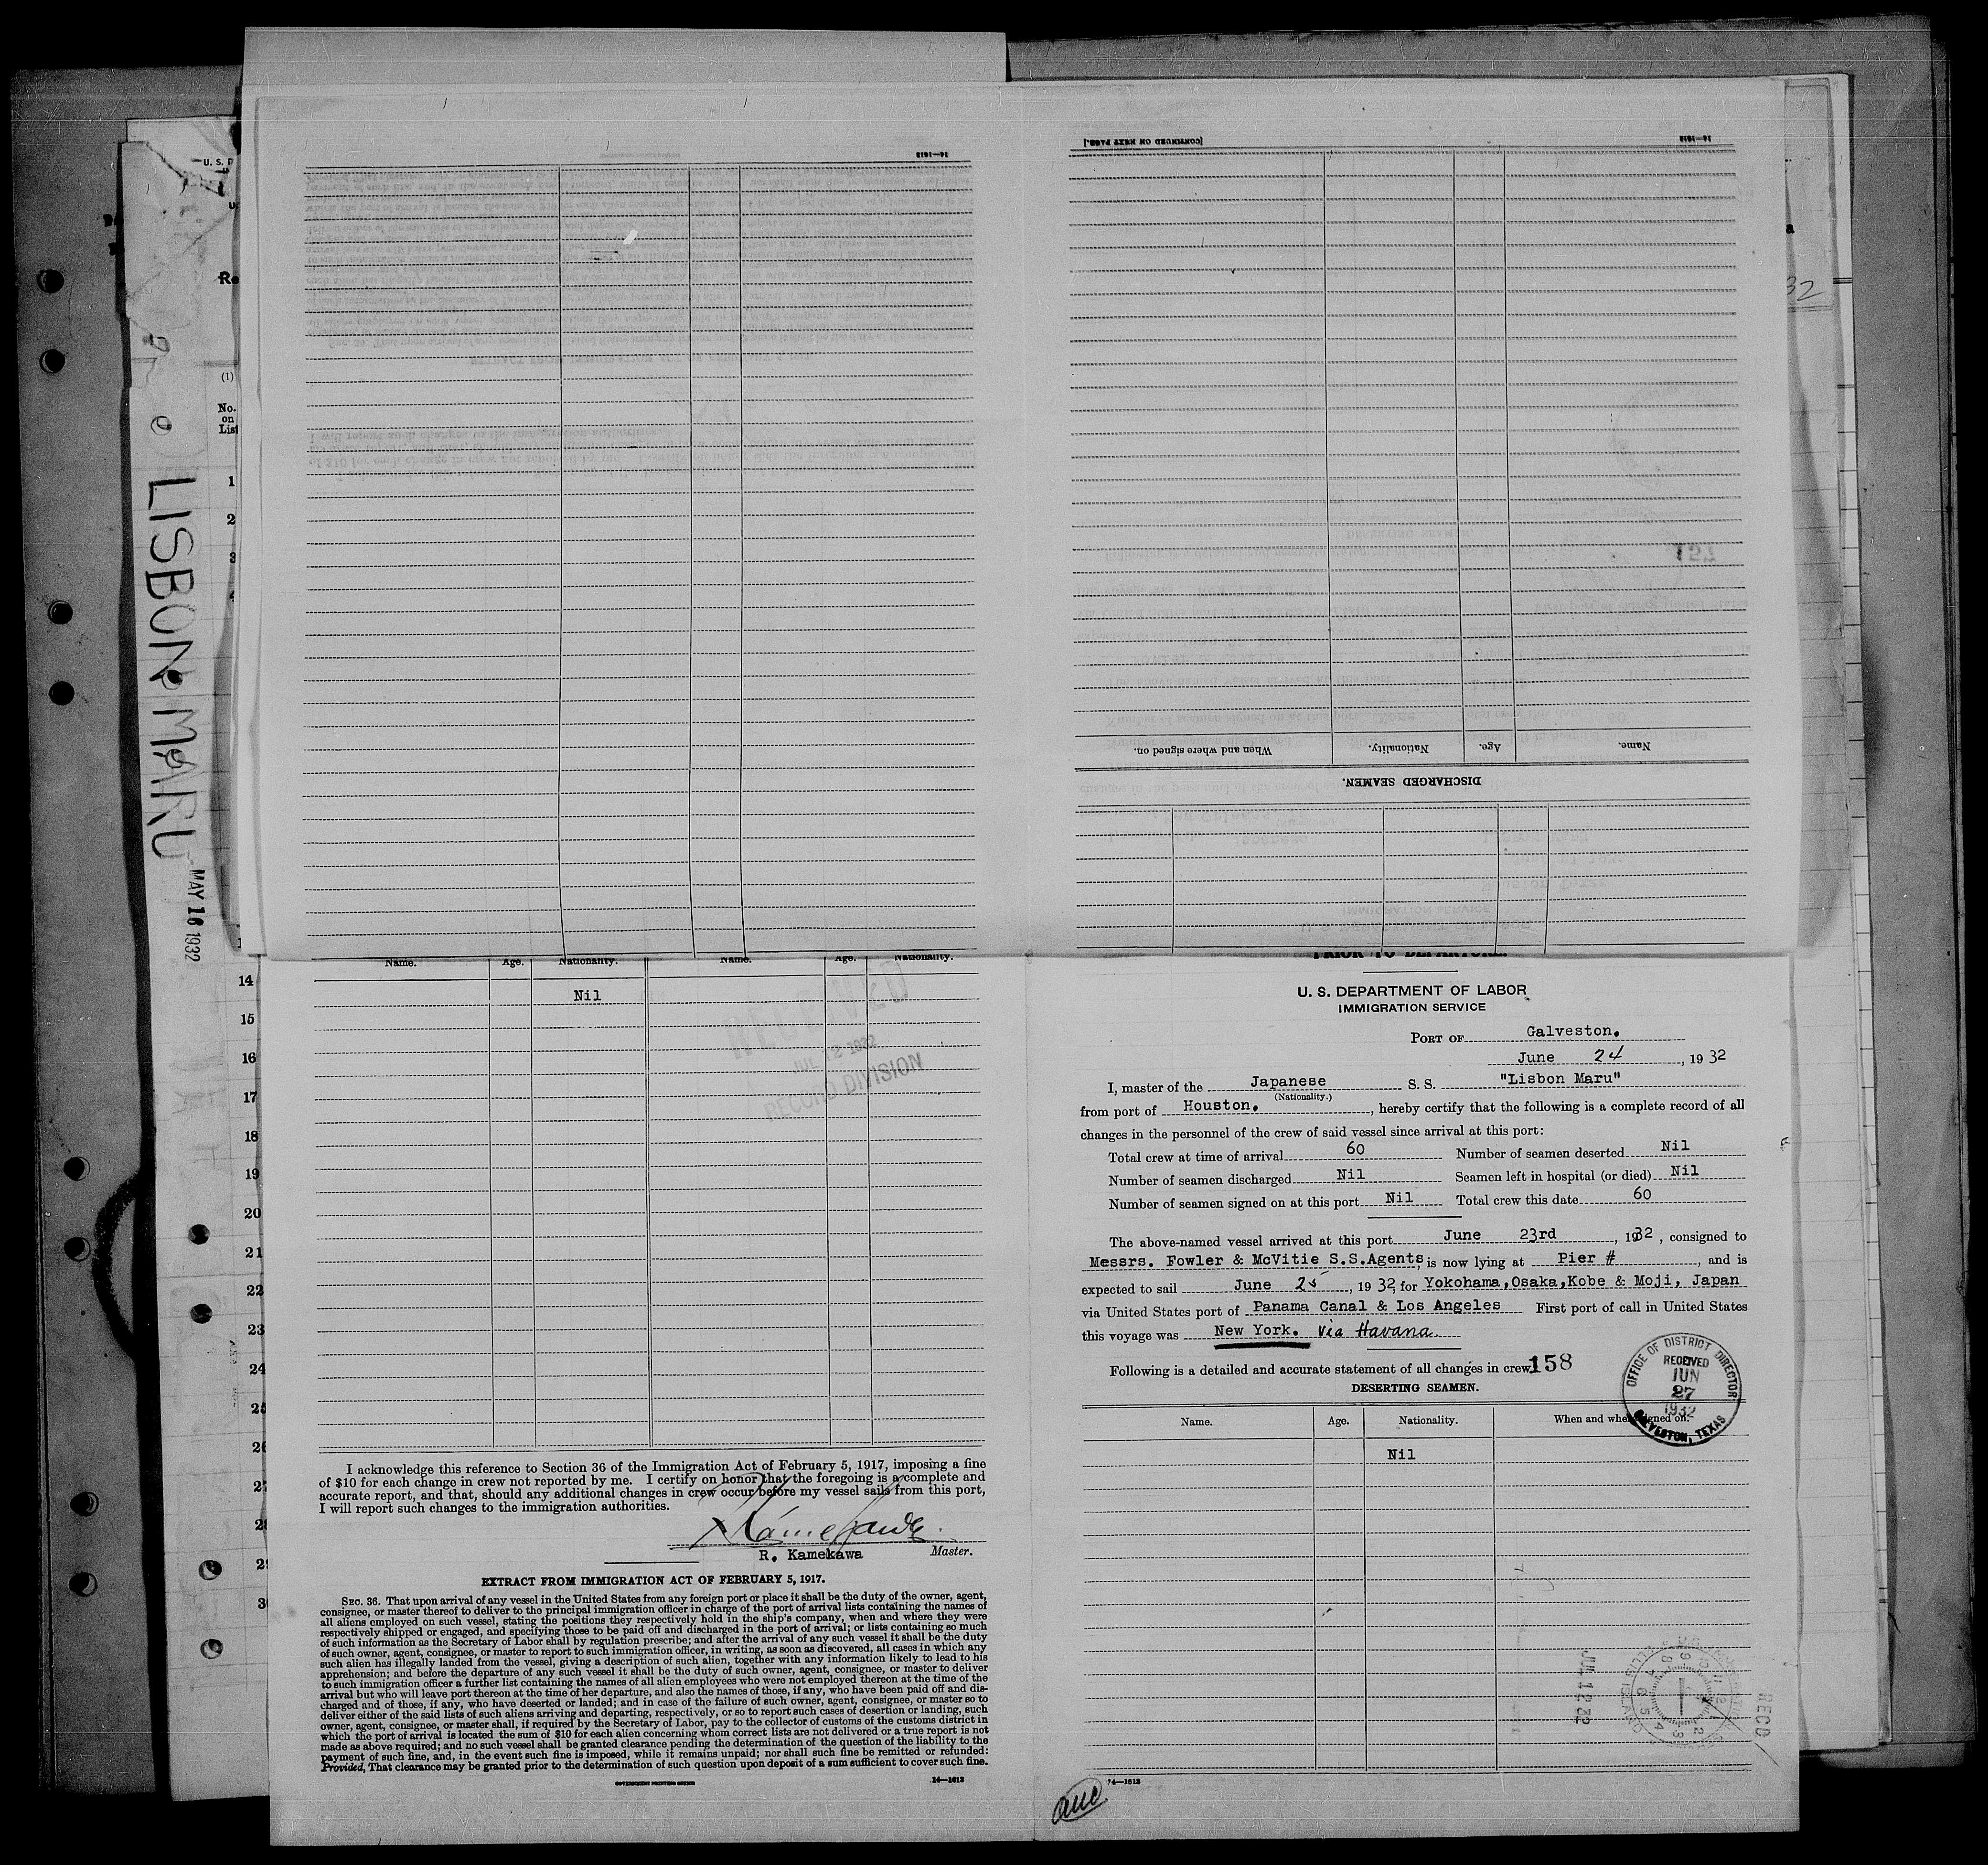 [CONTINUED ON NEXT PAGE.]
14—1613
14—1613
Name. Age. Nationality. When and where signed on.
DISCHARGED SEAMEN.
U. S. D
Re
(1)
No.
on
List
1
2
3
LISBON MARU
MAY 16 1932
32
14
15
16
17
18
19
20
21
22
23
24
25
26
Name. Age. Nationality. Name. Age. Nationality.
Nil
RECEIVED
JUL 12 1932
RECORD DIVISION
I acknowledge this reference to Section 36 of the Immigration Act of February 5, 1917, imposing a fine
of $10 for each change in crew not reported by me. I certify on honor that the foregoing is a complete and
accurate report, and that, should any additional changes in crew occur before my vessel sails from this port,
I will report such changes to the immigration authorities.
R. Kamekawa Master.
EXTRACT FROM IMMIGRATION ACT OF FEBRUARY 5, 1917.
SEC. 36. That upon arrival of any vessel in the United States from any foreign port or place it shall be the duty of the owner, agent,
consignee, or master thereof to deliver to the principal immigration officer in charge of the port of arrival lists containing the names of
all aliens employed on such vessel, stating the positions they respectively hold in the ship's company, when and where they were
respectively shipped or engaged, and specifying those to be paid off and discharged in the port of arrival; or lists containing so much
of such information as the Secretary of Labor shall by regulation prescribe; and after the arrival of any such vessel it shall be the duty
of such owner, agent, consignee, or master to report to such immigration officer, in writing, as soon as discovered, all cases in which any
such alien has illegally landed from the vessel, giving a description of such alien, together with any information likely to lead to his
apprehension; and before the departure of any such vessel it shall be the duty of such owner, agent, consignee, or master to deliver
to such immigration officer a further list containing the names of all alien employees who were not employed thereon at the time of the
arrival but who will leave port thereon at the time of her departure, and also the names of those, if any, who have been paid off and dis-
charged and of those, if any, who have deserted or landed; and in case of the failure of such owner, agent, consignee, or master so to
deliver either of the said lists of such aliens arriving and departing, respectively, or so to report such cases of desertion or landing, such
owner, agent, consignee, or master shall, if required by the Secretary of Labor, pay to the collector of customs of the customs district in
which the port of arrival is located the sum of $10 for each alien concerning whom correct lists are not delivered or a true report is not
made as above required; and no such vessel shall be granted clearance pending the determination of the question of the liability to the
payment of such fine, and, in the event such fine is imposed, while it remains unpaid; nor shall such fine be remitted or refunded:
Provided, That clearance may be granted prior to the determination of such question upon deposit of a sum sufficient to cover such fine.
GOVERNMENT PRINTING OFFICE 14—1613
PRIOR TO DEPARTURE.
U. S. DEPARTMENT OF LABOR
IMMIGRATION SERVICE
PORT OF Galveston.
June 24, 1932
I, master of the Japanese S. S. "Lisbon Maru"
(Nationality.)
from port of Houston. , hereby certify that the following is a complete record of all
changes in the personnel of the crew of said vessel since arrival at this port:
Total crew at time of arrival 60 Number of seamen deserted Nil
Number of seamen discharged Nil Seamen left in hospital (or died) Nil
Number of seamen signed on at this port Nil Total crew this date 60
The above-named vessel arrived at this port June 23rd , 1932 , consigned to
Messrs. Fowler & McVitie S.S.Agents, is now lying at Pier # , and is
expected to sail June 25 , 1932, for Yokohama,Osaka,Kobe & Moji, Japan
via United States port of Panama Canal & Los Angeles First port of call in United States
this voyage was New York. Via Havana.
Following is a detailed and accurate statement of all changes in crew: 158
DESERTING SEAMEN.
OFFICE OF DISTRICT DIRECTOR
RECEIVED
JUN
27
1932
GALVESTON, TEXAS
Name. Age. Nationality. When and where signed on.
Nil
JUL 12 32
RECD
14—1613